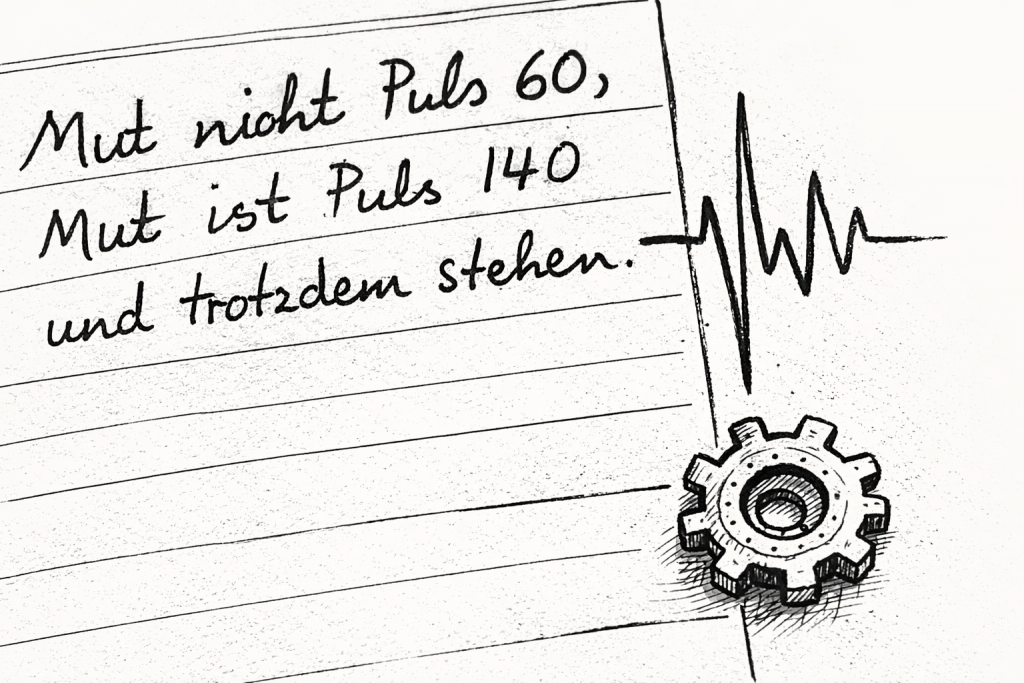 Mut nicht Puls 60,
Mut ist Puls 140
und trotzdem stehen.